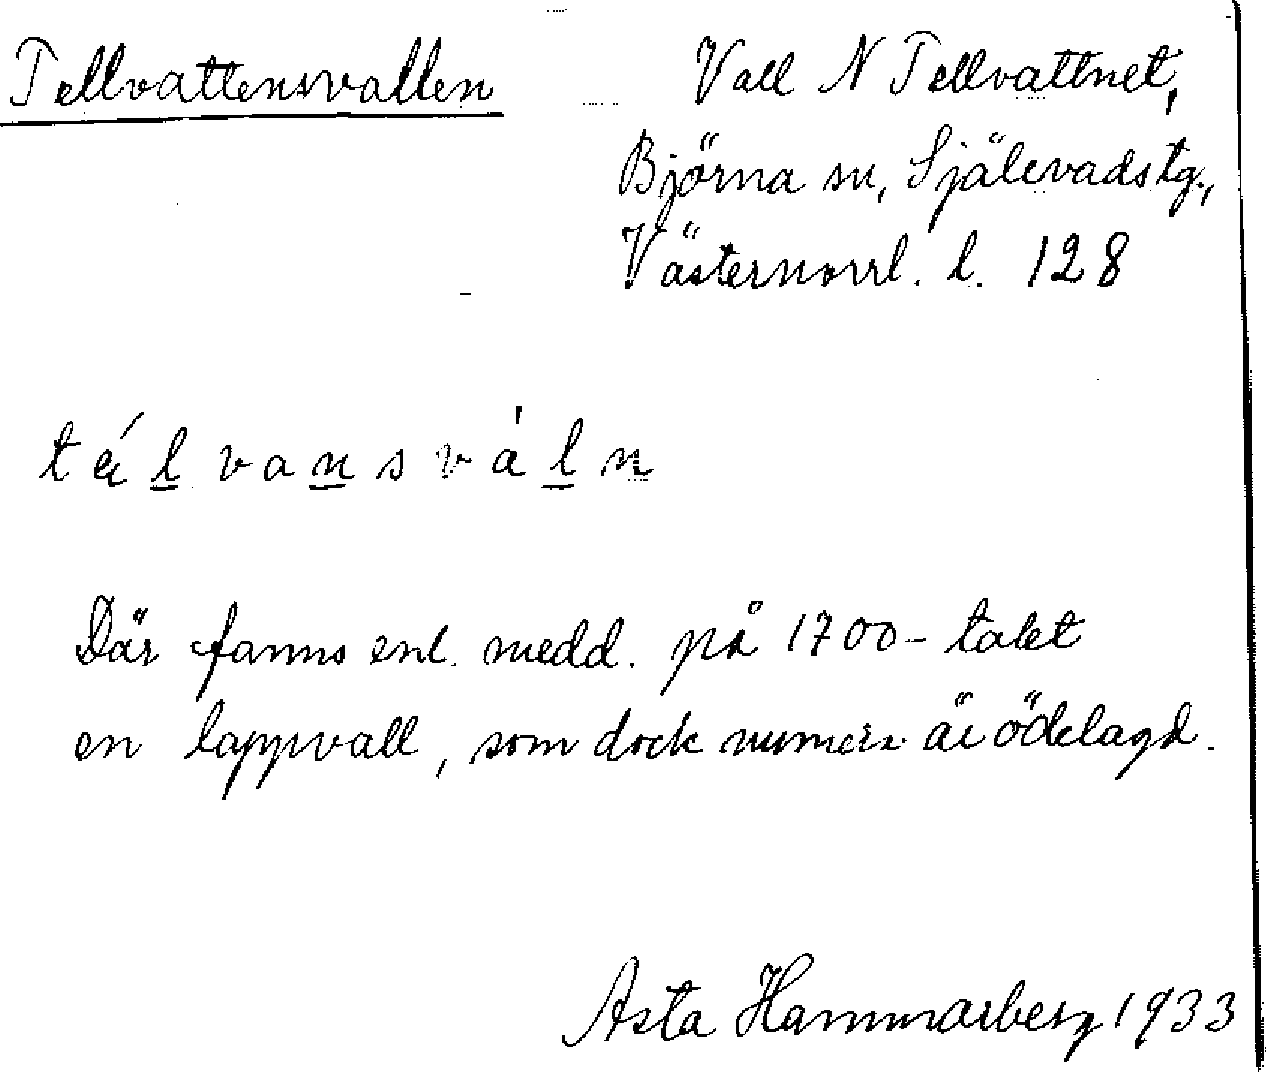 Tellvattensvallen
Vall N Tellvattnet,
Björna sn, Själevads tg.,
Västernorrl. l. 128
tǽlvansvàln
Där fanns enl. medd. på 1700-talet
en lappvall, som dock numera är ödelagd.
Asta Hammarberg 1933